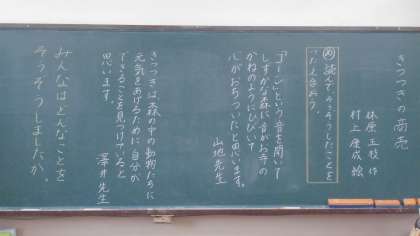 きつつきの商売
林原玉枝 作
村上康成 絵
め 読んでそうぞうしたことを
つたえ合おう。
「コーン」という音を聞いて
しずかな森に音がお寺の
かねのようにひびいて
心がおちついたと思います。
山地先生
きつつきは森の中の動物たちに
元気をあげるために自分が
できることを見つけていると
思います。
澤井先生
みんなはどんなことを
そうぞうしましたか。